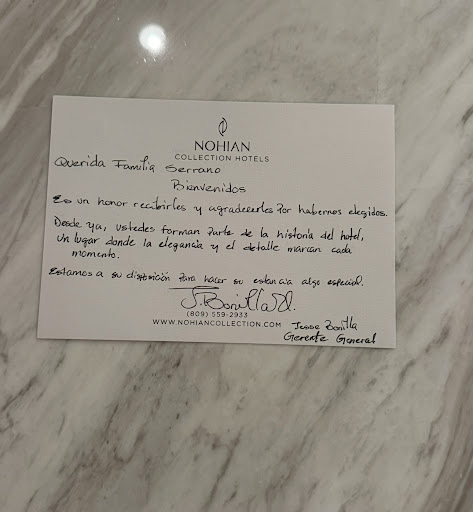 NOHIAN
COLLECTION HOTELS
Querida Familia Serrano
Bienvenidos
Es un honor recibirles y agradecerles por habernos elegidos.
Desde ya, ustedes forman parte de la historia del hotel,
un lugar donde la elegancia y el detalle marcan cada
momento.
Estamos a su disposición para hacer su estancia algo especial.
J. Bonilla D.
(809) 559-2933
WWW.NOHIANCOLLECTION.COM
Bonilla
Gerente General